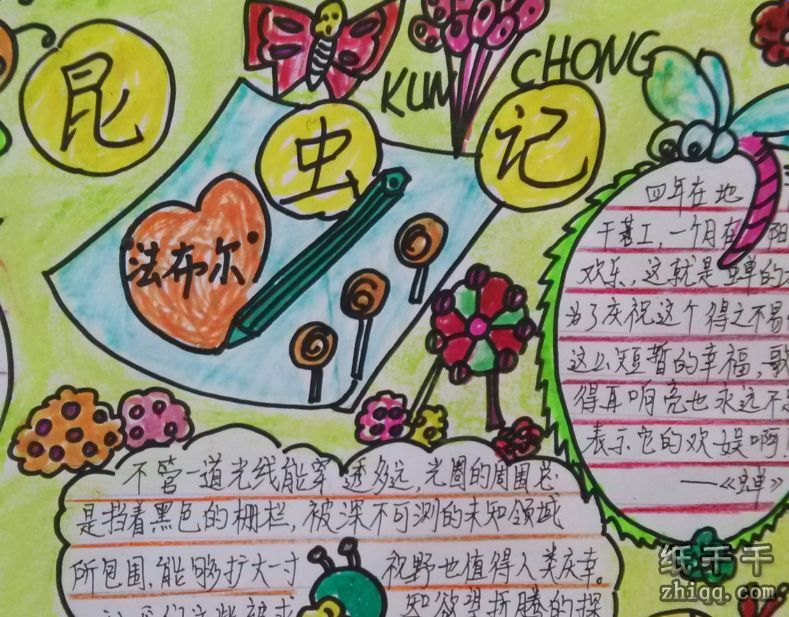 昆
虫
记
KUN CHONG
法布尔
四年在地
干苦工,一个月在 阳
欢乐,这就是蝉的
为了庆祝这个得之不易
这么短暂的幸福,歌
得再响亮也永远不
表示它的欢娱啊!
——《蝉》
不管一道光线能穿透多远,光圈的周围总
是挡着黑色的栅栏,被深不可测的未知领域
所包围,能够扩大一寸 视野也值得人类庆幸。
知欲望折腾的探
纸千千
zhiqq.com